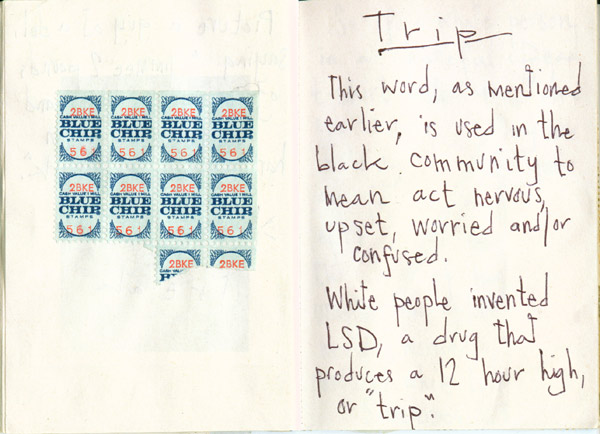 2BKE 2BKE 2BKE 2BKE
CASH VALUE 1 MILL CASH VALUE 1 MILL CASH VALUE 1 MILL CASH VALUE 1 MILL
BLUE BLUE BLUE BLUE
CHIP CHIP CHIP CHIP
STAMPS STAMPS STAMPS STAMPS
561 561 561 561
2BKE 2BKE 2BKE 2BKE
CASH VALUE 1 MILL CASH VALUE 1 MILL CASH VALUE 1 MILL CASH VALUE 1 MILL
BLUE BLUE BLUE BLUE
CHIP CHIP CHIP CHIP
STAMPS STAMPS STAMPS STAMPS
561 561 561 561
2BKE 2BKE
Trip
This word, as mentioned
earlier, is used in the
black community to
mean act nervous,
upset, worried and/or
confused.
White people invented
LSD, a drug that
produces a 12 hour high,
or "trip".